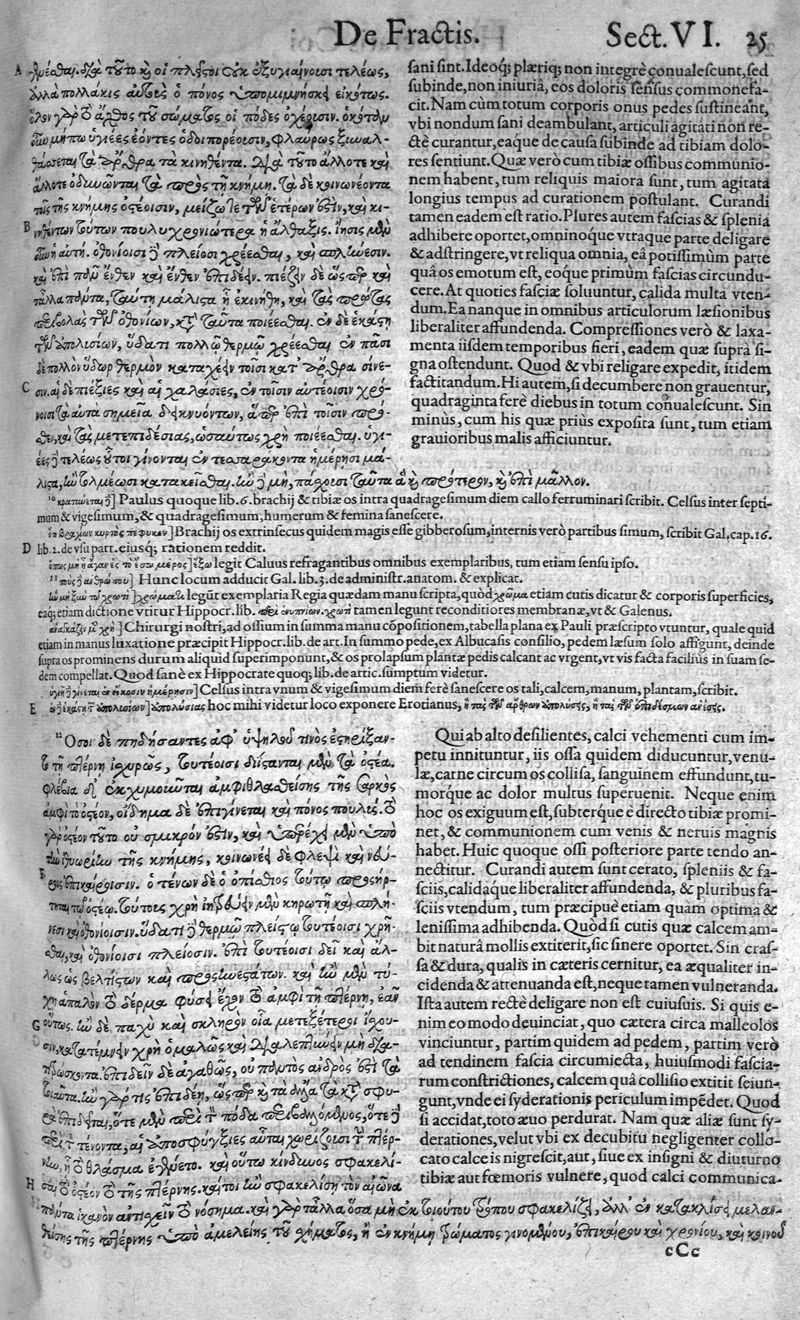 De Fractis. Sect. VI. 25
οἱ πλεῖστοι οὐκ ἐξυγιαίνουσι τελέως,
ἀλλὰ πολλάκις αὐτοὺς ὁ πόνος ὑπομιμνήσκει εἰκότως.
ὅλον γὰρ τὸ ἄχθος τοῦ σώματος οἱ πόδες ὀχέουσιν. ὁκόταν
οὖν μήπω ὑγιέες ἐόντες ὁδοιπορέουσιν, φλαύρως
τὰ ἄρθρα τὰ κινηθέντα. διὰ τοῦτο ἄλλοτε καὶ
ἄλλοτε ὀδυνῶνται τὰ πρὸς τῇ κνήμῃ. τὰ δὲ κοινωνέοντα
τοῖς τῆς κνήμης ὀστέοισιν, μείζω τε τῶν ἑτέρων ἐστίν, καὶ κι-
νηθέντων τούτων πουλυχρονιωτέρη ἡ ἄλθεξις. ἴησις μὲν
οὖν ἡ αὐτή. ὀθονίοισι δὲ πλείοσι χρέεσθαι, καὶ σπλήνεσιν.
καὶ ἐπὶ πᾶν ἔνθεν καὶ ἔνθεν ἐπιδεῖν. πιέζειν δὲ ὥσπερ καὶ
τἆλλα πάντα, ταύτῃ μάλιστα ᾗ ἐκινήθη, καὶ τὰς πρώτας
περιβολὰς τῶν ὀθονίων, κατὰ ταῦτα ποιέεσθαι. ἐν δὲ ἑκάστῃ
τῶν ἀπολυσίων, ὕδατι πολλῷ θερμῷ χρέεσθαι. ἐν πᾶσι
δὲ πολλὸν ὕδωρ θερμὸν καταχεῖν τοῖσι κατ᾽ ἄρθρα σίνε-
σιν. αἱ δὲ πιέξιες καὶ αἱ χαλάσιες, ἐν τοῖσιν αὐτέοισιν χρό-
νοισι τὰ αὐτὰ σημεῖα δεικνυόντων, ἅπερ ἐπὶ τοῖσιν πρόσ-
θεν, καὶ τὰς μετεπιδέσιας, ὡσαύτως χρὴ ποιέεσθαι. ὑγι-
έες δὲ τελέως οὗτοι γίνονται ἐν τεσσαράκοντα ἡμέρῃσι μά-
λιστα, ἢν τολμέωσι κατακεῖσθαι. ἢν δὲ μὴ, πάσχουσι ταῦτα ἃ καὶ πρότερον, καὶ ἐπὶ μᾶλλον.
sani sint. Ideoq; plæriq; non integrè conualescunt, sed
subinde, non iniuriâ, eos doloris sensus commonefa-
cit. Nam cùm totum corporis onus pedes sustineant,
vbi nondum sani deambulant, articuli agitati non re-
ctè curantur, eaque de causa subinde ad tibiam dolo-
res sentiunt. Quæ verò cum tibiæ ossibus communio-
nem habent, tum reliquis maiora sunt, tum agitata
longius tempus ad curationem postulant. Curandi
tamen eadem est ratio. Plures autem fascias & splenia
adhibere oportet, omninoque vtraque parte deligare
& adstringere, vt reliqua omnia, eâ potissimùm parte
quâ os emotum est, eoque primùm fascias circundu-
cere. At quoties fasciæ soluuntur, calida multa vten-
dum. Ea nanque in omnibus articulorum læsionibus
liberaliter affundenda. Compressiones verò & laxa-
menta iisdem temporibus fieri, eadem quæ suprà si-
gna ostendunt. Quod & vbi religare expedit, itidem
factitandum. Hi autem, si decumbere non grauentur,
quadraginta ferè diebus in totum conualescunt. Sin
minùs, cum his quæ priùs exposita sunt, tum etiam
grauioribus malis afficiuntur.
Paulus quoque lib. 6. brachij & tibiæ os intra quadragesimum diem callo ferruminari scribit. Celsus inter septi-
mum & vigesimum, & quadragesimum, humerum & femina sanescere.
Brachij os extrinsecus quidem magis esse gibberosum, internis verò partibus simum, scribit Gal. cap. 16.
lib. 2. de vsu part. eiusq; rationem reddit.
legit Caluus refragantibus omnibus exemplaribus, tum etiam sensu ipso.
Hunc locum adducit Gal. lib. 3. de administr. anatom. & explicat.
legūt exemplaria Regia quædam manu scripta, quòd χρῶμα etiam cutis dicatur & corporis superficies,
eaq; etiam dictione vtitur Hippocr. lib. tamen legunt reconditiores membranæ, vt & Galenus.
Chirurgi nostri, ad ossium in summa manu cōpositionem, tabella plana ex Pauli præscripto vtuntur, quale quid
etiam in manus luxatione præcipit Hippocr. lib. de art. In summo pede, ex Albucasis consilio, pedem læsum solo affigunt, deinde
supra os prominens durum aliquid superimponunt, & os prolapsum plantæ pedis calcant ac vrgent, vt vis facta facilius in suam se-
dem compellat. Quod sanè ex Hippocrate quoq; lib. de artic. sumptum videtur.
Celsus intra vnum & vigesimum diem ferè sanescere os tali, calcem, manum, plantam, scribit.
hoc mihi videtur loco exponere Erotianus,
Ὅσοι δὲ πηδήσαντες ἀφ᾽ ὑψηλοῦ τινὸς ἐστηρίξαν-
το τῇ πτέρνῃ ἰσχυρῶς, τουτέοισι διΐσταται μὲν τὰ ὀστέα.
φλέβια δὲ ἐκχυμοῦται ἀμφιθλασθείσης τῆς σαρκὸς
ἀμφὶ τὸ ὀστέον, οἴδημα δὲ ἐπιγίνεται καὶ πόνος πουλύς. τὸ
γὰρ ὀστέον τοῦτο οὐ σμικρόν ἐστιν, καὶ ὑπερέχει μὲν ὑπὸ
τὴν ἰθυωρίην τῆς κνήμης, κοινωνέει δὲ φλεψὶ καὶ νεύ-
ροις ἐπικαίροισιν. ὁ τένων δὲ ὁ ὀπίσθιος τούτῳ προσήρ-
τηται τῷ ὀστέῳ. τούτους χρὴ ἰητρεύειν μὲν κηρωτῇ καὶ σπλή-
νεσι καὶ ὀθονίοισιν. ὕδατι δὲ θερμῷ πλείστῳ τουτέοισι χρῆ-
σθαι, καὶ ὀθονίοισι πλείοσιν. ἐπὶ τουτέοισι δεῖ καὶ ἄλ-
λως ὡς βελτίστων καὶ προσηνεστάτων. καὶ ἢν μὲν τύ-
χῃ ἁπαλὸν τὸ δέρμα φύσει ἔχον τὸ ἀμφὶ τῇ πτέρνῃ, ἐᾶν
οὕτως. ἢν δὲ παχὺ καὶ σκληρὸν οἷα μετεξέτεροι ἴσχου-
σιν, κατατέμνειν χρὴ ὁμαλῶς καὶ διαλεπτύνειν μὴ δια-
τιτρώσκοντα. ἐπιδεῖν δὲ ἀγαθῶς, οὐ παντὸς ἀνδρός ἐστι τὰ
τοιαῦτα. ἢν γάρ τις ἐπιδέῃ, ὥσπερ καὶ τὰ ἄλλα τὰ κατὰ σφυ-
ρὰ ἐπιδεῖται, ὅτε μὲν περὶ τὸν πόδα περιβαλλόμενος, ὅτε δὲ
περὶ τὸν τένοντα, αἱ ἀποσφίγξιες αὗται χωρίζουσι τὴν πτέρ-
νην, ᾗ τὸ φλάσμα ἐγένετο. καὶ οὕτω κίνδυνος σφακελί-
σαι τὸ ὀστέον τὸ τῆς πτέρνης. καίτοι ἢν σφακελίσῃ τὸν αἰῶνα
Qui ab alto desilientes, calci vehementi cum im-
petu innituntur, iis ossa quidem diducuntur, venu-
læ, carne circum os collisa, sanguinem effundunt, tu-
morque ac dolor multus superuenit. Neque enim
hoc os exiguum est, subterque è directo tibiæ promi-
net, & communionem cum venis & neruis magnis
habet. Huic quoque ossi posteriore parte tendo an-
nectitur. Curandi autem sunt cerato, spleniis & fa-
sciis, calidaque liberaliter affundenda, & pluribus fa-
sciis vtendum, tum præcipuè etiam quam optima &
lenissima adhibenda. Quòd si cutis quæ calcem am-
bit naturâ mollis extiterit, sic sinere oportet. Sin cras-
sa & dura, qualis in cæteris cernitur, ea æqualiter in-
cidenda & attenuanda est, neque tamen vulneranda.
Ista autem rectè deligare non est cuiusuis. Si quis e-
nim eo modo deuinciat, quo cætera circa malleolos
vinciuntur, partim quidem ad pedem, partim verò
ad tendinem fascia circumiecta, huiusmodi fascia-
rum constrictiones, calcem quâ collisio extitit seiun-
gunt, vnde ei syderationis periculum impēdet. Quod
si accidat, toto æuo perdurat. Nam quæ aliæ sunt sy-
derationes, velut vbi ex decubitu negligenter collo-
cato calce is nigrescit, aut, siue ex insigni & diuturno
tibiæ aut fœmoris vulnere, quod calci communica-
πάντα ἱκανὸν ἀντέχειν τὸ νόσημα. καὶ γὰρ τἆλλα ὅσα μὴ ἐκ τοιούτου τρόπου σφακελίζει, ἀλλ᾽ ἐν κατακλίσει μελαν-
θείσης τῆς πτέρνης ὑπὸ ἀμελείης τοῦ σχήματος, ἢ ἐν κνήμῃ τρώματος γινομένου, ἐπικαίρου καὶ χρονίου, καὶ κοινοῦ
cCc